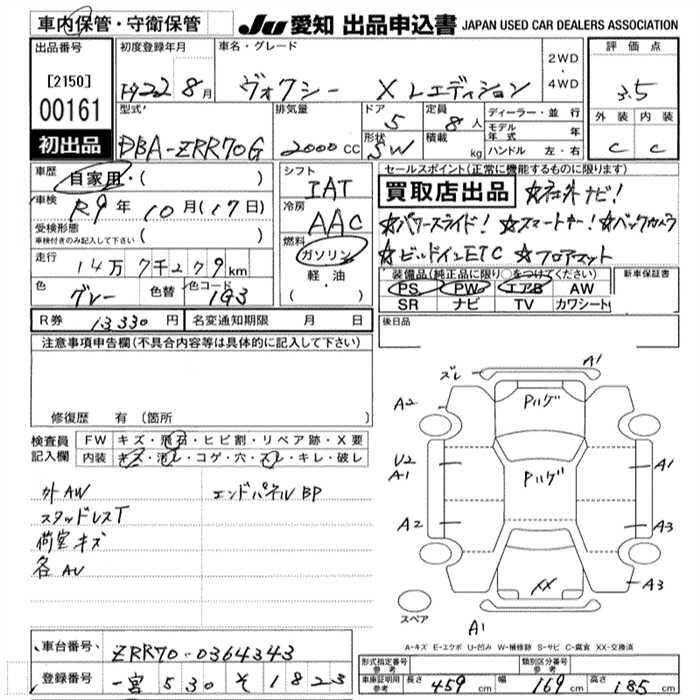 車内保管・守衛保管
JU 愛知 出品申込書 JAPAN USED CAR DEALERS ASSOCIATION
出品番号
[2150]
00161
初出品
初度登録年月
22 8月
車名・グレード
ヴォクシー X Lエディション
2WD
・
4WD
評価点
3.5
外装 内装
C C
型式
DBA-ZRR70G
排気量
2000 CC
ドア
5
形状
SW
定員
8人
積載
kg
ディーラー・並行
モデル年式 年
ハンドル 左・右
車歴
自家用・( )
車検
R9年 10月(17日)
受検形態
車検付きのみ記入して下さい ( )
走行
14万7千279km
色
グレー
色替
色コード
1G3
シフト
IAT
冷房
AAC
燃料
ガソリン
・
軽・油
( )
セールスポイント(正常に機能するものに限ります)
買取店出品 ☆社外ナビ!
☆パワースライド! ☆スマートキー! ☆バックカメラ
☆ビルドインETC ☆フロアマット
装備品(純正品に限り○をつけてください)
PS PW エアB AW
SR ナビ TV カワシート
新車保証書
後日品
R券 13330円
名変通知期限 月 日
注意事項申告欄(不具合内容等は具体的に記入して下さい)
修復歴 有 (箇所 )
検査員
記入欄
FW キズ・飛石・ヒビ割・リペア跡・X要
内装 キズ・汚レ・コゲ・穴・スレ・キレ・破レ
外AW
スタッドレスT
荷室キズ
各AU
エンドパネルBP
ズレ
A1
A2
Pハゲ
U2
A1
Pハゲ
A1
A2
A3
XX
A3
A1
スペア
A-キズ E-エクボ U-凹み W-補修跡 S-サビ C-腐食 XX-交換済
車台番号
ZRR70-0364343
登録番号
一宮 530 そ 1823
形式指定番号
参考
類別区分番号
参考
車庫証明用
参考
長さ 459cm
幅 169cm
高さ 185cm